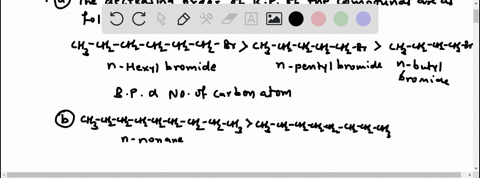 a The decreasing order of B.P. of the compounds are as
fol
CH3-CH2-CH2-CH2-CH2-CH2-Br > CH3-CH2-CH2-CH2-CH2-Br > CH3-CH2-CH2-CH2-Br
n-Hexyl bromide n-pentyl bromide n-butyl
bromide
B.P. α No. of carbon atom
b CH3-CH2-CH2-CH2-CH2-CH2-CH2-CH2-CH3 > CH3-CH2-CH2-CH2-CH2-CH2-CH2-CH3
n-nonane